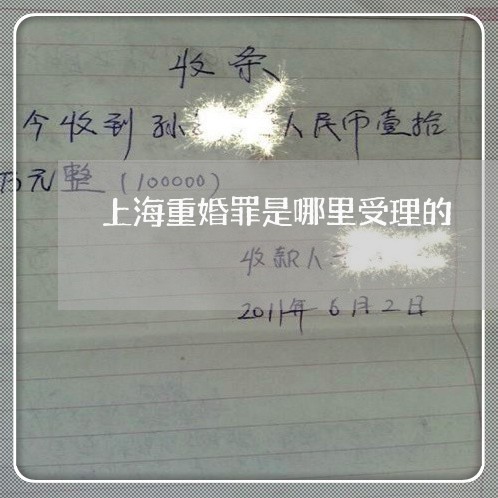 收条
今收到孙 人民币壹拾
万元整（100000）
上海重婚罪是哪里受理的
收款人
2011年6月2日